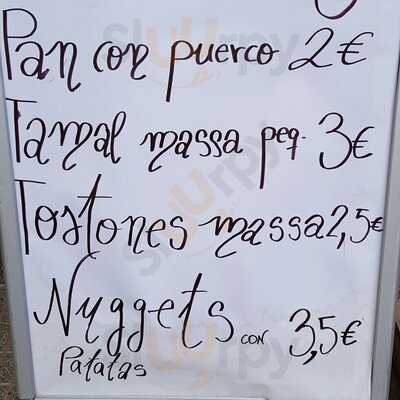 Pan con puerco 2€
Tamal massa peq. 3€
Tostones massa 2,5€
Nuggets con 3,5€
Patatas